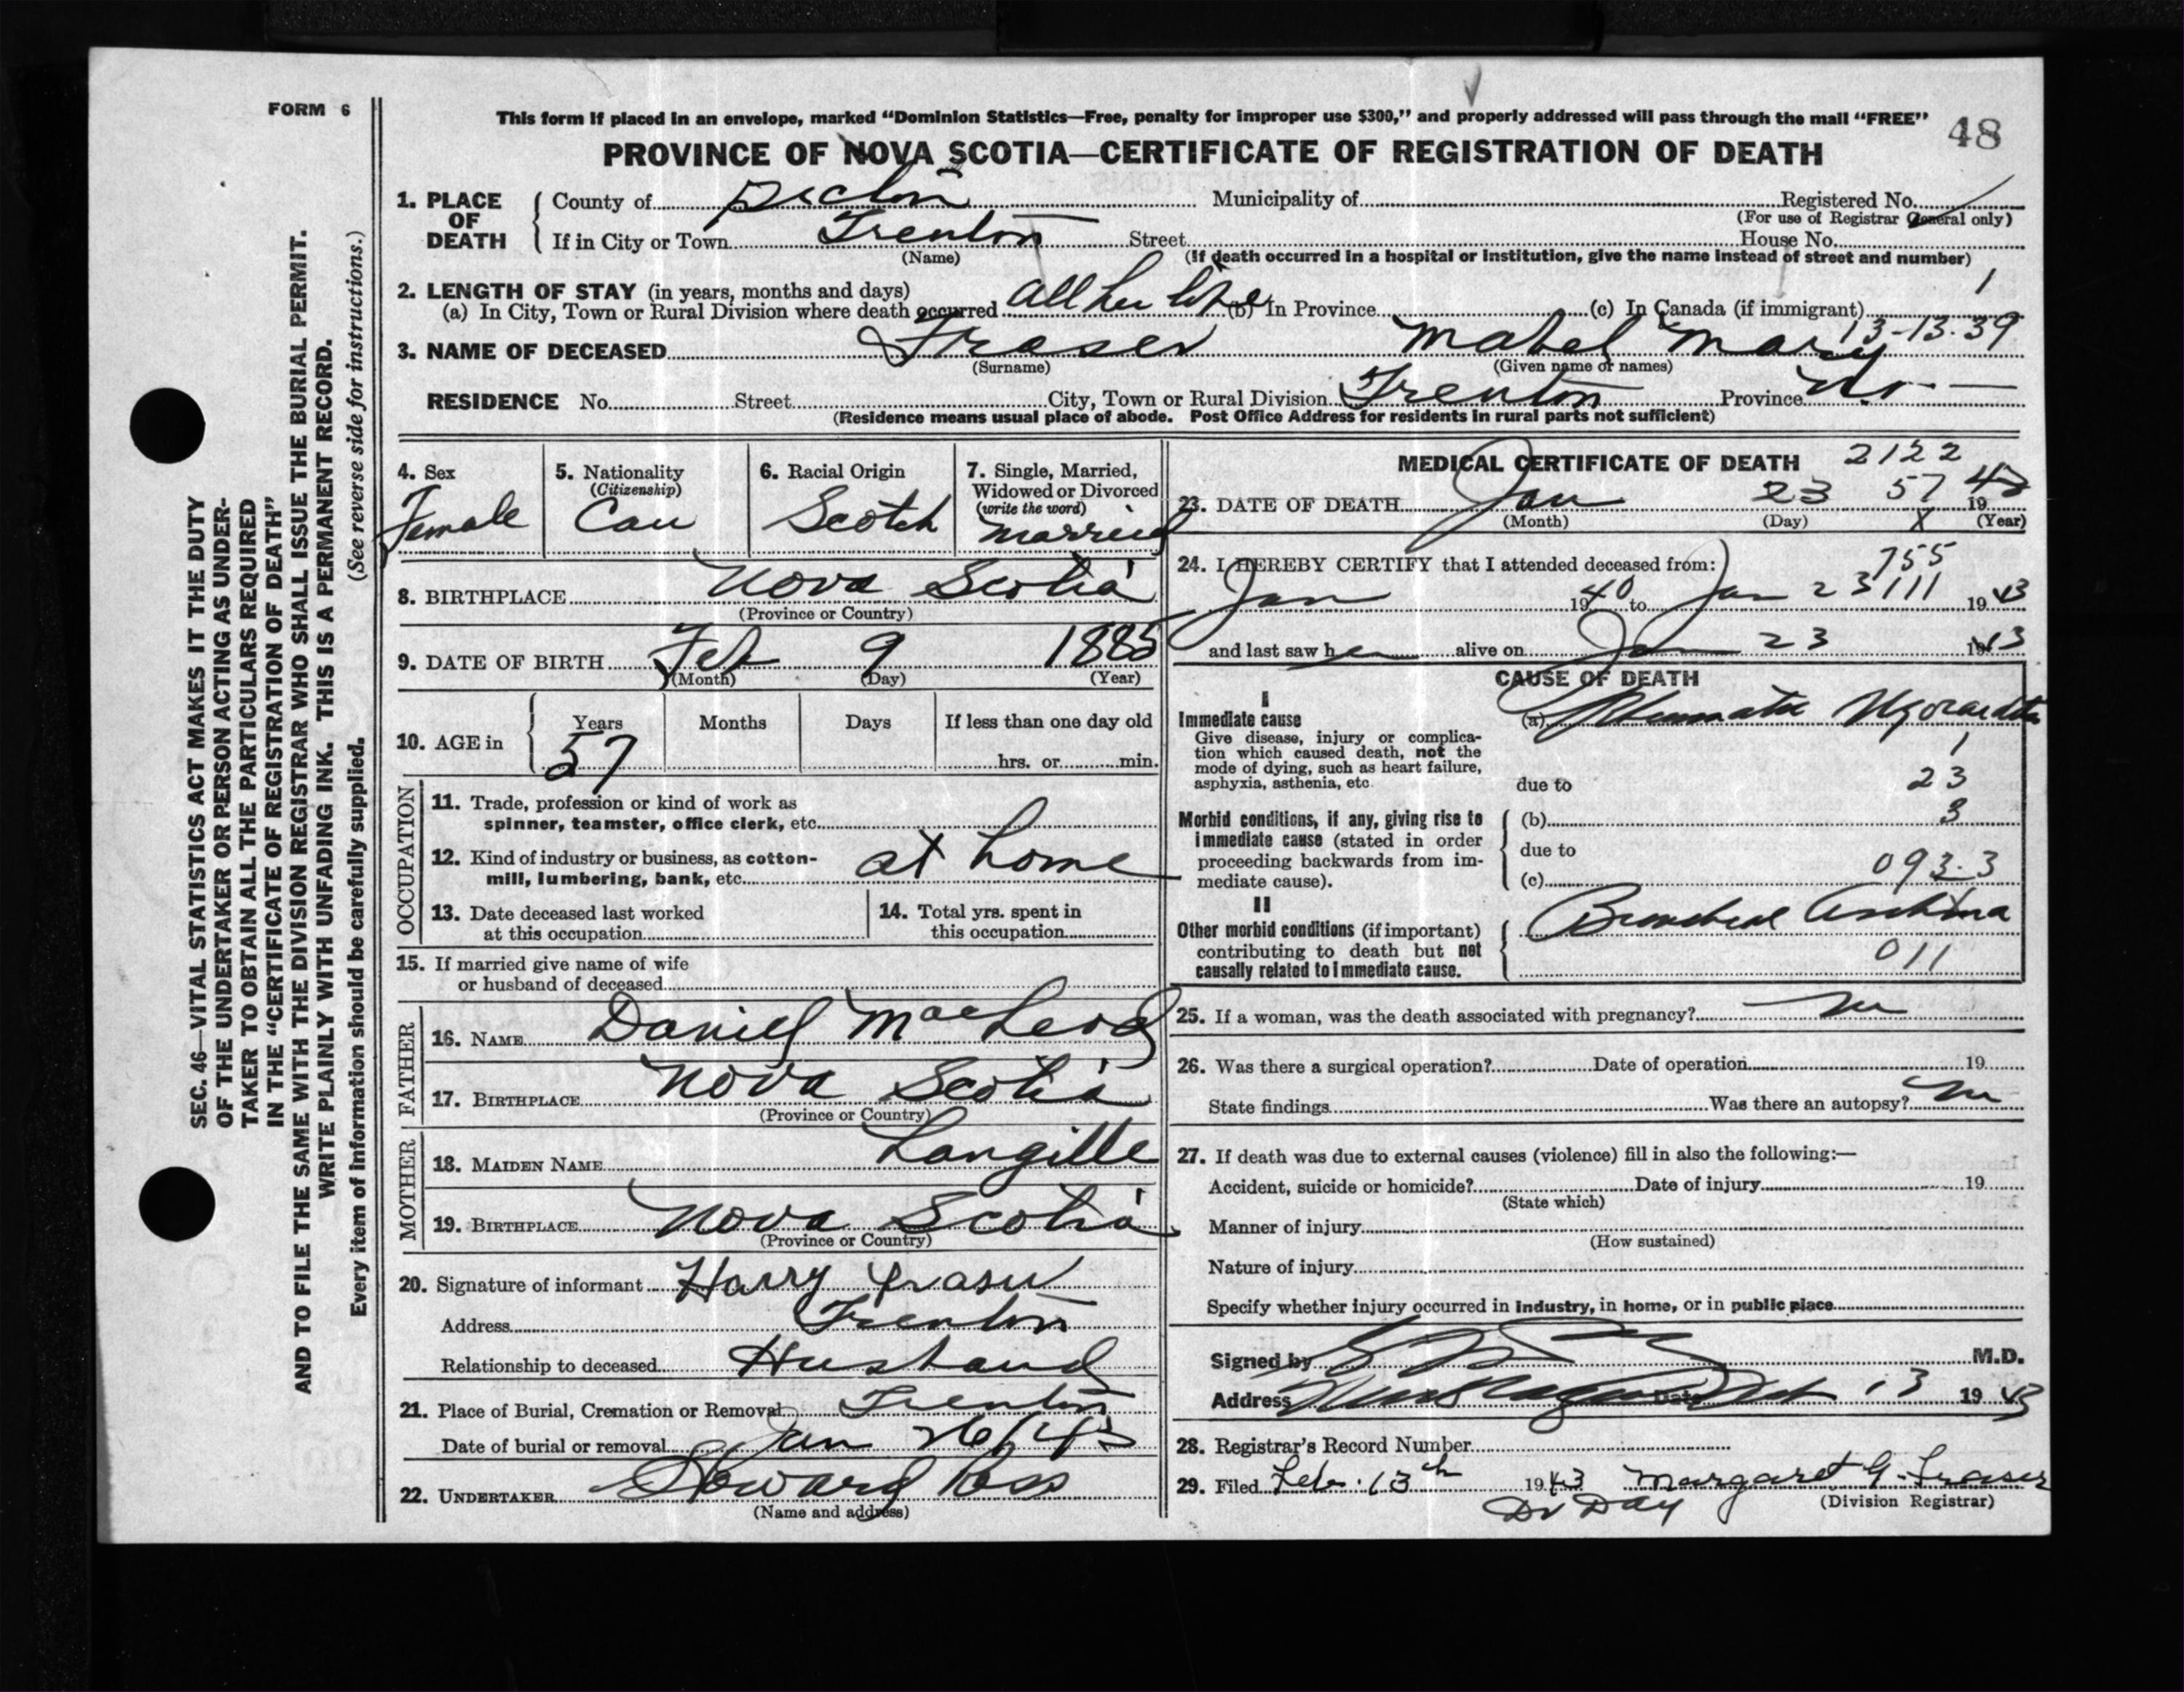 FORM 6
This form if placed in an envelope, marked "Dominion Statistics—Free, penalty for improper use $300," and properly addressed will pass through the mail "FREE"
48
PROVINCE OF NOVA SCOTIA—CERTIFICATE OF REGISTRATION OF DEATH
SEC. 46—VITAL STATISTICS ACT MAKES IT THE DUTY
OF THE UNDERTAKER OR PERSON ACTING AS UNDER-
TAKER TO OBTAIN ALL THE PARTICULARS REQUIRED
IN THE "CERTIFICATE OF REGISTRATION OF DEATH"
AND TO FILE THE SAME WITH THE DIVISION REGISTRAR WHO SHALL ISSUE THE BURIAL PERMIT.
WRITE PLAINLY WITH UNFADING INK. THIS IS A PERMANENT RECORD.
Every item of information should be carefully supplied. (See reverse side for instructions.)
1. PLACE OF DEATH
County of Pictou Municipality of Registered No.
(For use of Registrar General only)
If in City or Town Trenton Street House No.
(Name) (If death occurred in a hospital or institution, give the name instead of street and number)
2. LENGTH OF STAY (in years, months and days) 1
(a) In City, Town or Rural Division where death occurred all her life (b) In Province (c) In Canada (if immigrant)
13-13-39
3. NAME OF DECEASED Fraser Mabel Mary
(Surname) (Given name or names)
RESIDENCE No. Street City, Town or Rural Division Trenton Province NS
(Residence means usual place of abode. Post Office Address for residents in rural parts not sufficient)
4. Sex
Female
5. Nationality
(Citizenship)
Can
6. Racial Origin
Scotch
7. Single, Married,
Widowed or Divorced
(write the word)
Married
8. BIRTHPLACE Nova Scotia
(Province or Country)
9. DATE OF BIRTH Feb 9 1885
(Month) (Day) (Year)
10. AGE in Years Months Days If less than one day old
57 hrs. or min.
OCCUPATION
11. Trade, profession or kind of work as
spinner, teamster, office clerk, etc.
12. Kind of industry or business, as cotton-
mill, lumbering, bank, etc. at home
13. Date deceased last worked
at this occupation
14. Total yrs. spent in
this occupation
15. If married give name of wife
or husband of deceased
FATHER
16. NAME Daniel MacLeod
17. BIRTHPLACE Nova Scotia
(Province or Country)
MOTHER
18. MAIDEN NAME Langille
19. BIRTHPLACE Nova Scotia
(Province or Country)
20. Signature of informant Harry Fraser
Address Trenton
Relationship to deceased Husband
21. Place of Burial, Cremation or Removal Trenton
Date of burial or removal Jan 26/43
22. UNDERTAKER Howard Ross
(Name and address)
MEDICAL CERTIFICATE OF DEATH 2122
23. DATE OF DEATH Jan 23 57 1943
(Month) (Day) X (Year)
24. I HEREBY CERTIFY that I attended deceased from: 755
Jan 1940 to Jan 23 111 1943
and last saw her alive on Jan 23 1943
CAUSE OF DEATH
I
Immediate cause
Give disease, injury or complica-
tion which caused death, not the
mode of dying, such as heart failure,
asphyxia, asthenia, etc.
(a)
1
due to 23
Morbid conditions, if any, giving rise to
immediate cause (stated in order
proceeding backwards from im-
mediate cause).
(b) 3
due to
093.3
(c)
II
Other morbid conditions (if important)
contributing to death but not
causally related to immediate cause.
Bronchial Asthma
011
25. If a woman, was the death associated with pregnancy? no
26. Was there a surgical operation? Date of operation 19
State findings Was there an autopsy? no
27. If death was due to external causes (violence) fill in also the following:—
Accident, suicide or homicide? Date of injury 19
(State which)
Manner of injury
(How sustained)
Nature of injury
Specify whether injury occurred in industry, in home, or in public place
Signed by M.D.
Address Date 13 1943
28. Registrar's Record Number
29. Filed Feb. 13th 1943 Margaret G. Fraser
Dr Day (Division Registrar)